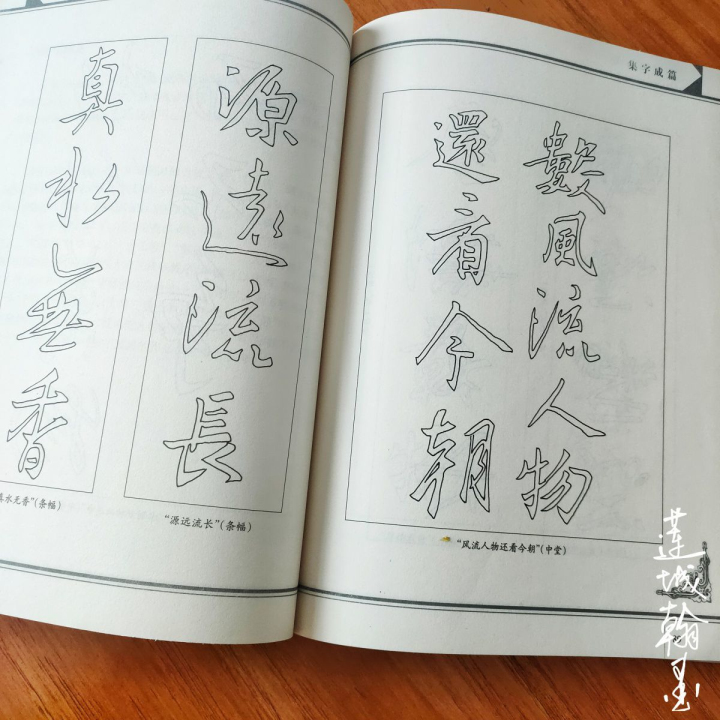 真水無香
水无香”(条幅)
源遠流長
“源远流长”(条幅)
集字成篇
數風流人物
還看今朝
“风流人物还看今朝”(中堂)
莲城翰墨